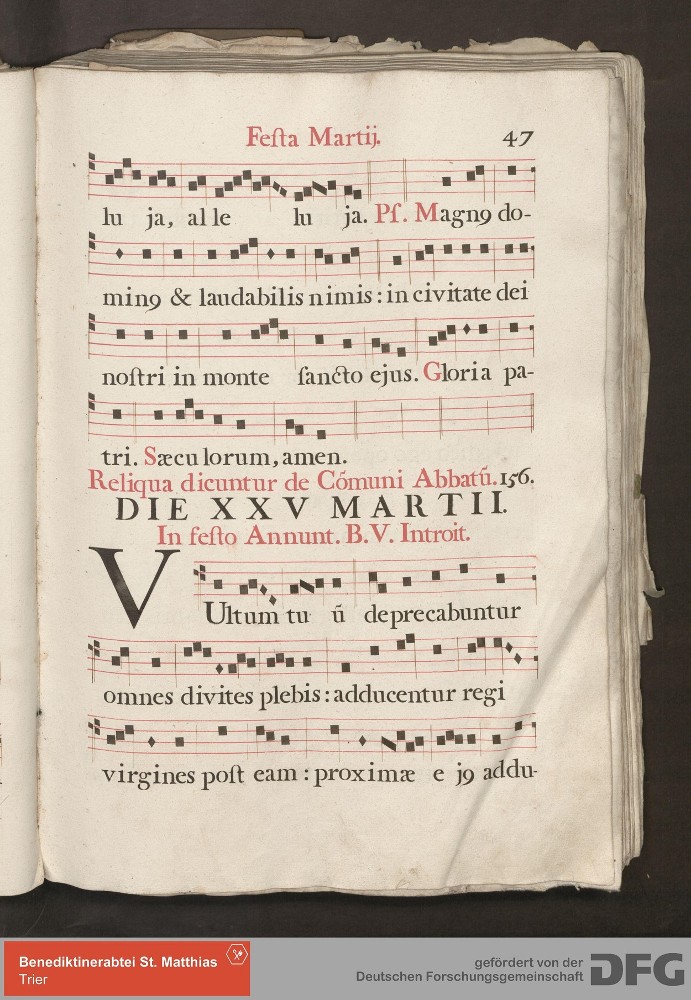 Feſta Martij. 47
lu ja, alle lu ja. Pſ. Magnꝯ do-
minꝯ & laudabilis nimis : in civitate dei
noſtri in monte ſancto ejus. Gloria pa-
tri. Sæcu lorum, amen.
Reliqua dicuntur de Cõmuni Abbatũ. 156.
DIE XXV MARTII.
In feſto Annunt. B.V. Introit.
VUltum tu ũ deprecabuntur
omnes divites plebis : adducentur regi
virgines poſt eam : proximæ e jꝯ addu-
Benediktinerabtei St. Matthias
Trier
gefördert von der
Deutschen Forschungsgemeinschaft
DFG